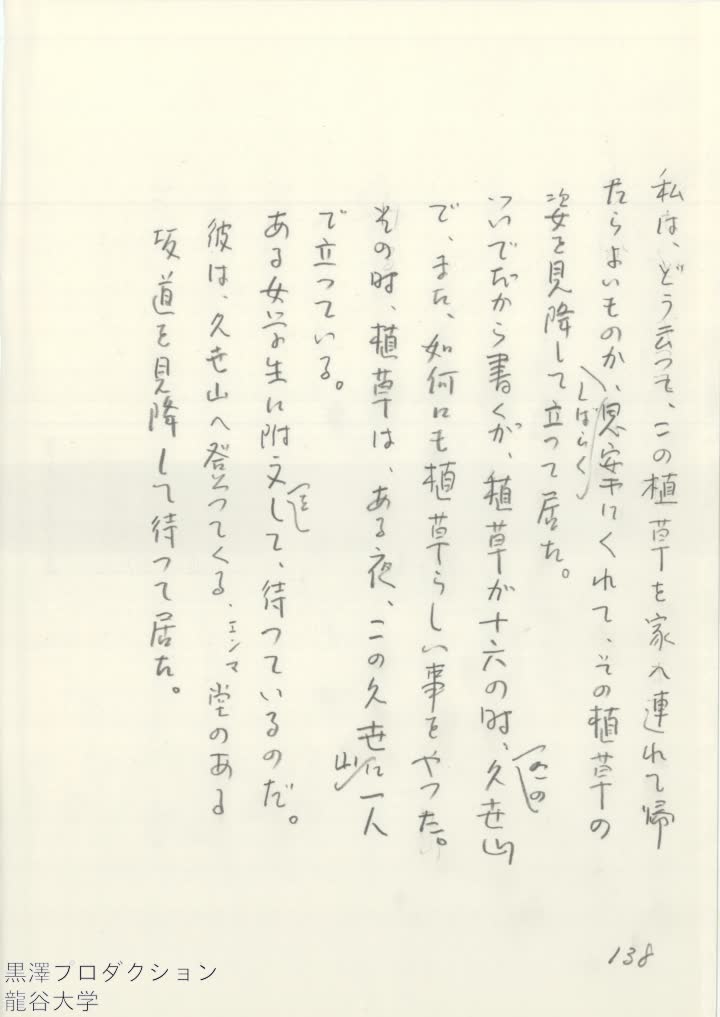 私は、どう云つて、この植草を家へ連れて帰
たらよいものか、しばらく思案にくれて、その植草の
姿を見降して立つて居た。
ついでだから書くが、植草が十六の時、この久世山
で、また、如何にも植草らしい事をやつた。
その時、植草は、ある夜、この久世山に一人
で立つている。
ある女学生に附文をして、待つているのだ。
彼は、久世山へ登つてくる、エンマ堂のある
坂道を見降して待つて居た。
138
黒澤プロダクション
龍谷大学